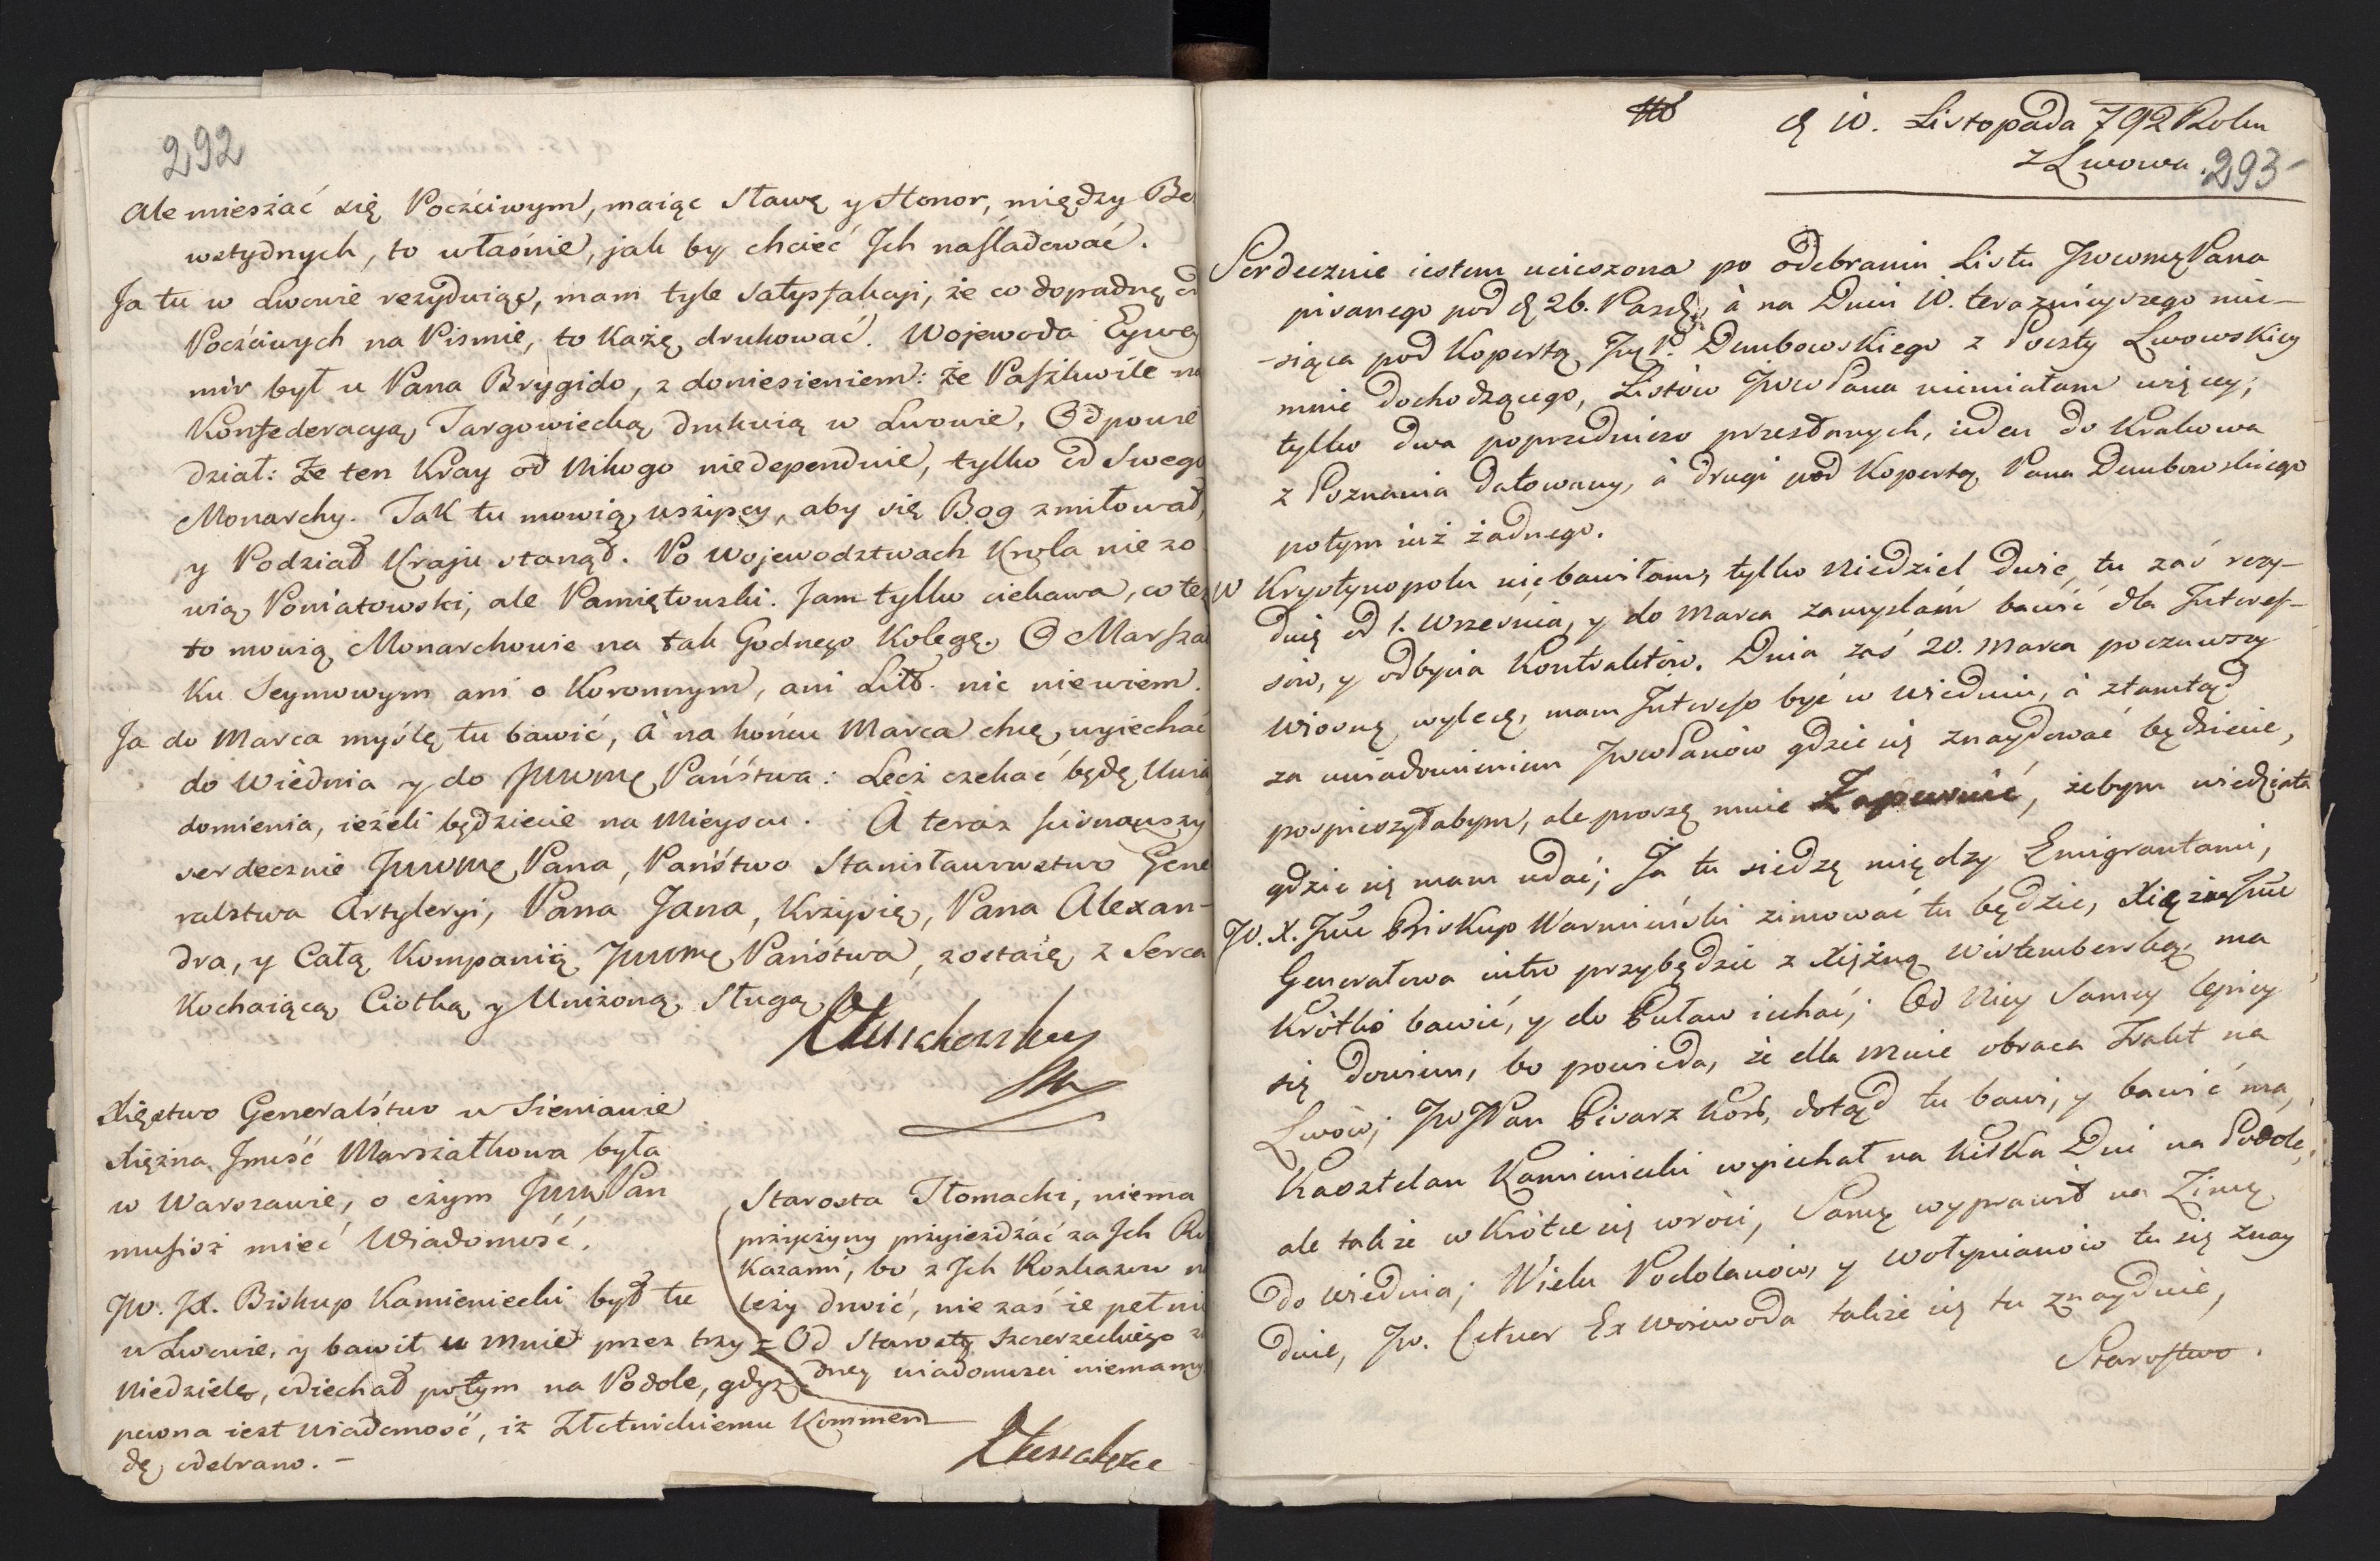 292
Ale mieszać się Poczciwym, maiąc Sławę y Honor, między Be
wstydnych, to właśnie, jak by chcieć Jch naśladować.
Ja tu w Lwowie rezyduiąc, mam tyle satysfakcyi, że co dopadnę od
Poczciwych na Pismie, to każę drukować. Wojewoda
mir był u Pana Brygido, z doniesieniem: że Paszkwile na
Konfederacyą Targowiecką drukuią w Lwowie, Odpowie
dział: Że ten Kray od Nikogo niedependuie, tylko od Swego
Monarchy. Tak tu mowią wszyscy, aby się Bog zmiłował,
y Podział Kraju stanął. Po Wojewodztwach Krola nie zo
wią Poniatowski, ale Pamiętowski. Jam tylko ciekawa, co też
to mowią Monarchowie na tak Godnego Kolegę. O Marszał
ku Seymowym ani o Koronnym, ani Litt. nic niewiem.
Ja do Marca myślę tu bawić, à na końcu Marca chcę wyiechać
do Wiednia y do JWWMę Państwa: Lecz czekać będę Uwia
domienia, ieżeli będziecie na Mieyscu. A teraz scisnąwszy
serdecznie JWWMę Pana, Państwo Stanisławowstwo Gene
ralstwa Artyleryi, Pana Jana, Krzysię, Pana Alexan-
dra, y Całą Kompanią JWWMę Państwa, zostaię z Serca
Kochaiącą Ciotką y Uniżoną Sługą
Xięstwo Generalstwo w Sieniawie
Xiężna Jmość Marszałkowa była
w Warszawie, o czym JWW Pan
musisz mieć Wiadomość.
JW. JX. Biskup Kamieniecki był tu
w Lwowie, y bawił u mnie przez trzy
Niedziele, odiechał potym na Podole, gdyż
pewna iest wiadomość, iż Złotnickiemu Kommen
dę odebrano. –
Starosta Tłomacki, niema
przyczyny przyieżdżać za Jch
kazami, bo z Jch Rozkazow na
leży drwić, nie zaś ie pełnić
Od Starosty Szczerzeckiego
dney wiadomosci niemamy
d 10. Listopada 792 Roku
z Lwowa.
293
Serdecznie iestem ucieszona po odebraniu Listu JWWMę Pana
pisanego pod d 26. Pazdz. à na Dniu 10. teraznieyszego mie-
-siąca pod Kopertą JP. Dembowskiego z Poczty Lwowskiey
mnie dochodzącego, Listów JWW Pana niemiałam więcey,
tylko dwa poprzedniczo przesłanych, ieden do Krakowa
z Poznania datowany, à drugi pod Kopertą Pana Dembowskiego
potym iuż żadnego.
W Krystynopolu niebawiłam, tylko Niedziel dwie, tu zaś rezy-
duię od 1. Września, y do Marca zamyślam bawić dla Interes-
sow, y odbycia Kontraktów. Dnia zaś 20. Marca poczuwszy
Wiosnę wylecę, mam Interess być w Wiedniu, à ztamtąd
za uwiadomieniem JWW Panów gdzie się znaydować będziecie,
pospieszyłabym, ale proszę mnie Zapewnić, żebym wiedziała
gdzie się mam udać; Ja tu siedzę między Emigrantami,
JW. X. Jmć Biskup Warmiński zimować tu będzie, Xiężna Jmć
Generałowa iutro przybędzie z Xiężną Wirtemberską, ma
krótko bawić, y do Puław iechać; Od Niey Samey lepiey
się dowiem, bo powieda, że dla mnie obraca Trakt na
Lwów; JW Pan Pisarz Kor. dotąd tu bawi, y bawić ma,
Kasztelan Kamieniecki wyiechał na Kilka Dni na Podole,
ale także wkrótce się wróci, Samę wyprawił na Zimę
do Wiednia; Wielu Podolanów, y Wołynianów tu się znay
duie, JW. Cetner Ex Woiewoda także się tu znayduie,
Starostwo.